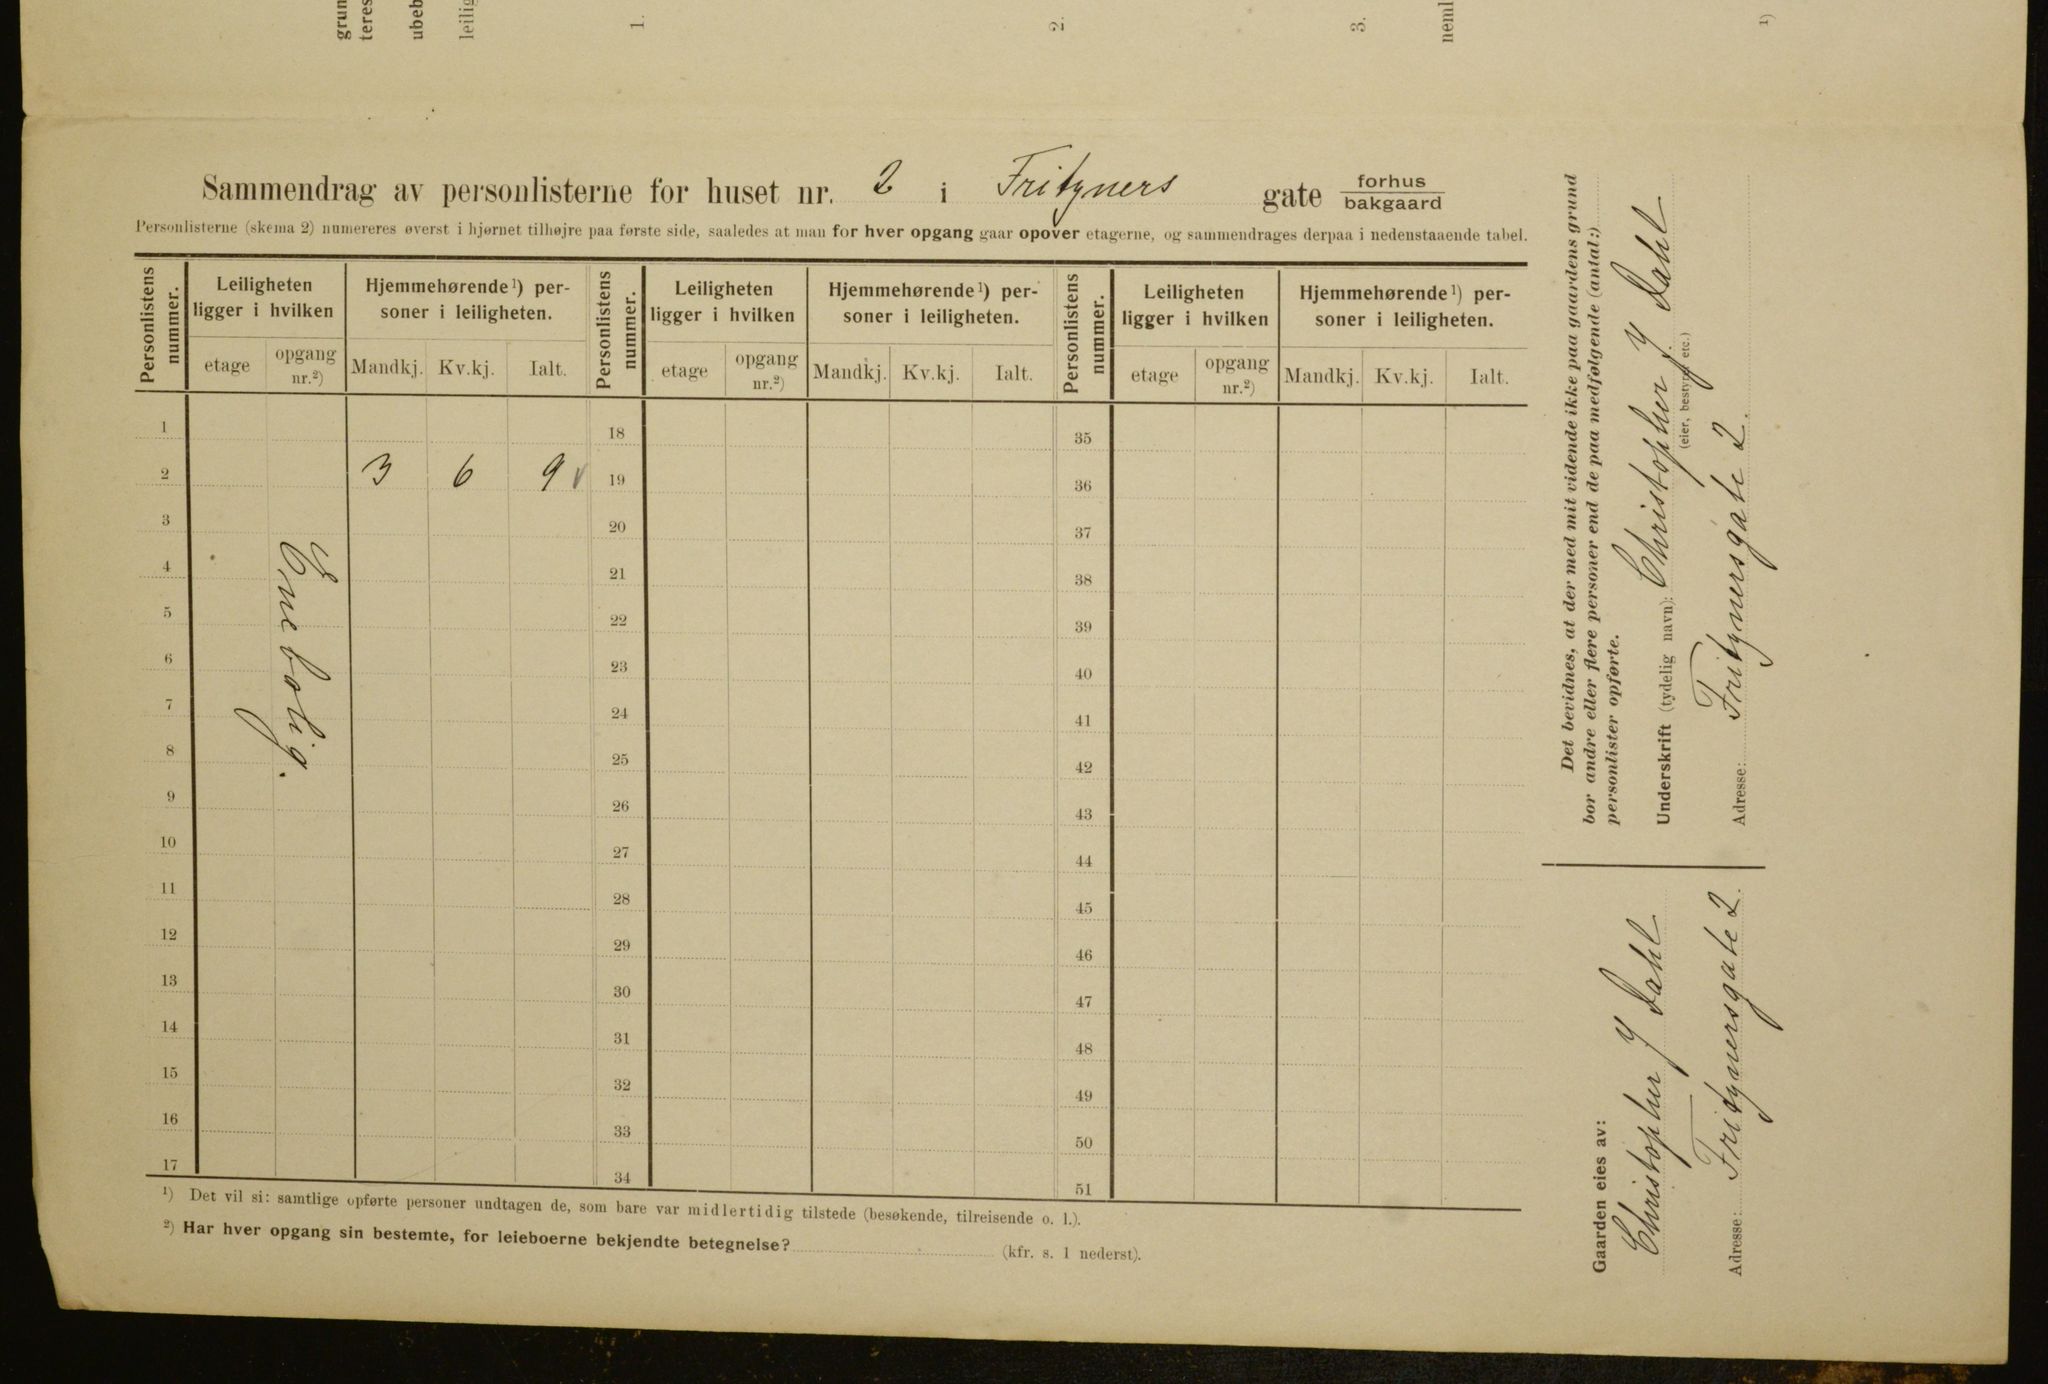 grun
teres
ubeb
leilig
1.
2.
3.
neml
1)
Sammendrag av personlisterne for huset nr. 2 i Fritzners gate forhus
bakgaard
Personlisterne (skema 2) numereres øverst i hjørnet tilhøjre paa første side, saaledes at man for hver opgang gaar opover etagerne, og sammendrages derpaa i nedenstaaende tabel.
Personlistens nummer. Leiligheten ligger i hvilken Hjemmehørende¹) personer i leiligheten. Personlistens nummer. Leiligheten ligger i hvilken Hjemmehørende¹) personer i leiligheten. Personlistens nummer. Leiligheten ligger i hvilken Hjemmehørende¹) personer i leiligheten.
etage opgang nr.²) Mandkj. Kv.kj. Ialt. etage opgang nr.²) Mandkj. Kv.kj. Ialt. etage opgang nr.²) Mandkj. Kv.kj. Ialt.
1 18 35
2 3 6 9 19 36
3 20 37
4 21 38
5 22 39
6 23 40
7 24 41
8 25 42
9 26 43
10 27 44
11 28 45
12 29 46
13 30 47
14 31 48
15 32 49
16 33 50
17 34 51
Enebolig.
¹) Det vil si: samtlige opførte personer undtagen de, som bare var midlertidig tilstede (besøkende, tilreisende o. l.).
²) Har hver opgang sin bestemte, for leieboerne bekjendte betegnelse? (kfr. s. 1 nederst).
Det bevidnes, at der med mit vidende ikke paa gaardens grund
bor andre eller flere personer end de paa medfølgende (antal:)
personlister opførte.
Underskrift (tydelig navn): Christopher J Dahl
(eier, bestyrer etc.)
Adresse: Fritznersgate 2.
Gaarden eies av:
Christopher J Dahl
Adresse: Fritznersgate 2.